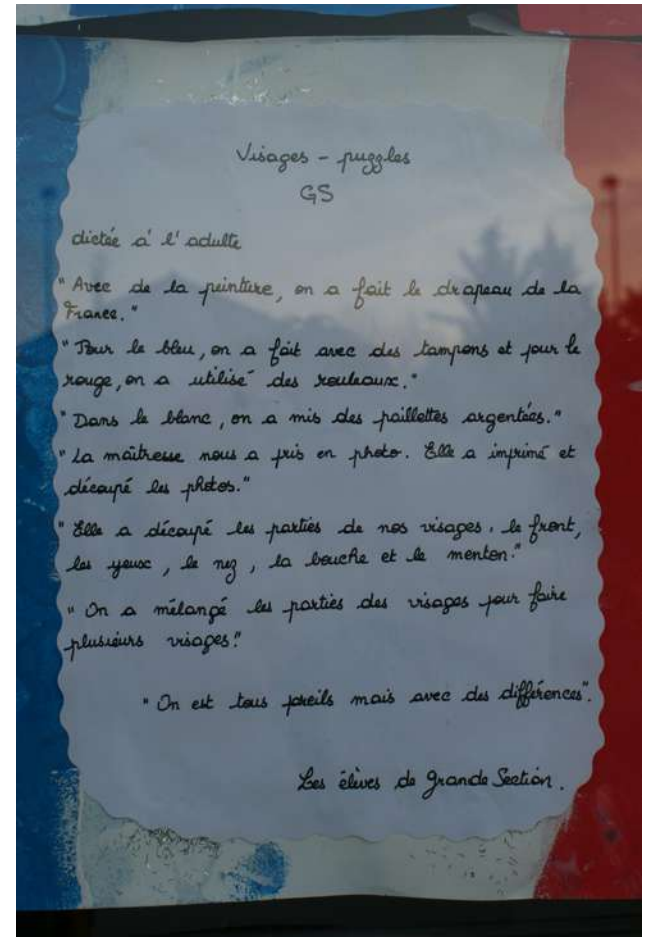 Visages - puzzles
GS
dictée à l'adulte
"Avec de la peinture, on a fait le drapeau de la
France."
"Pour le bleu, on a fait avec des tampons et pour le
rouge, on a utilisé des rouleaux."
"Dans le blanc, on a mis des paillettes argentées."
"La maîtresse nous a pris en photo. Elle a imprimé et
découpé les photos."
"Elle a découpé les parties de nos visages. le front,
les yeux, le nez, la bouche et le menton."
"On a mélangé les parties des visages pour faire
plusieurs visages."
"On est tous pareils mais avec des différences".
Les élèves de Grande Section.